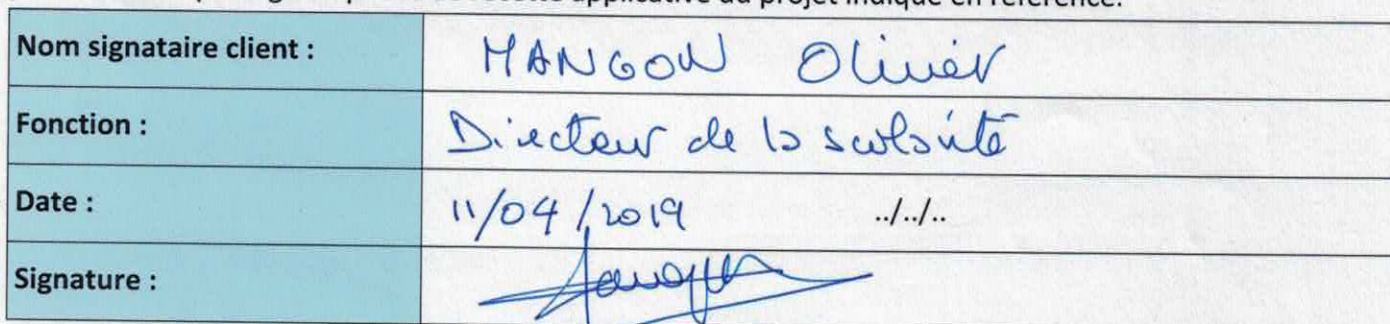 applicative du projet indiqué en référence.
Nom signataire client : MANGON Olivier
Fonction : Directeur de la scolarité
Date : 11/04/2019 ../../..
Signature :